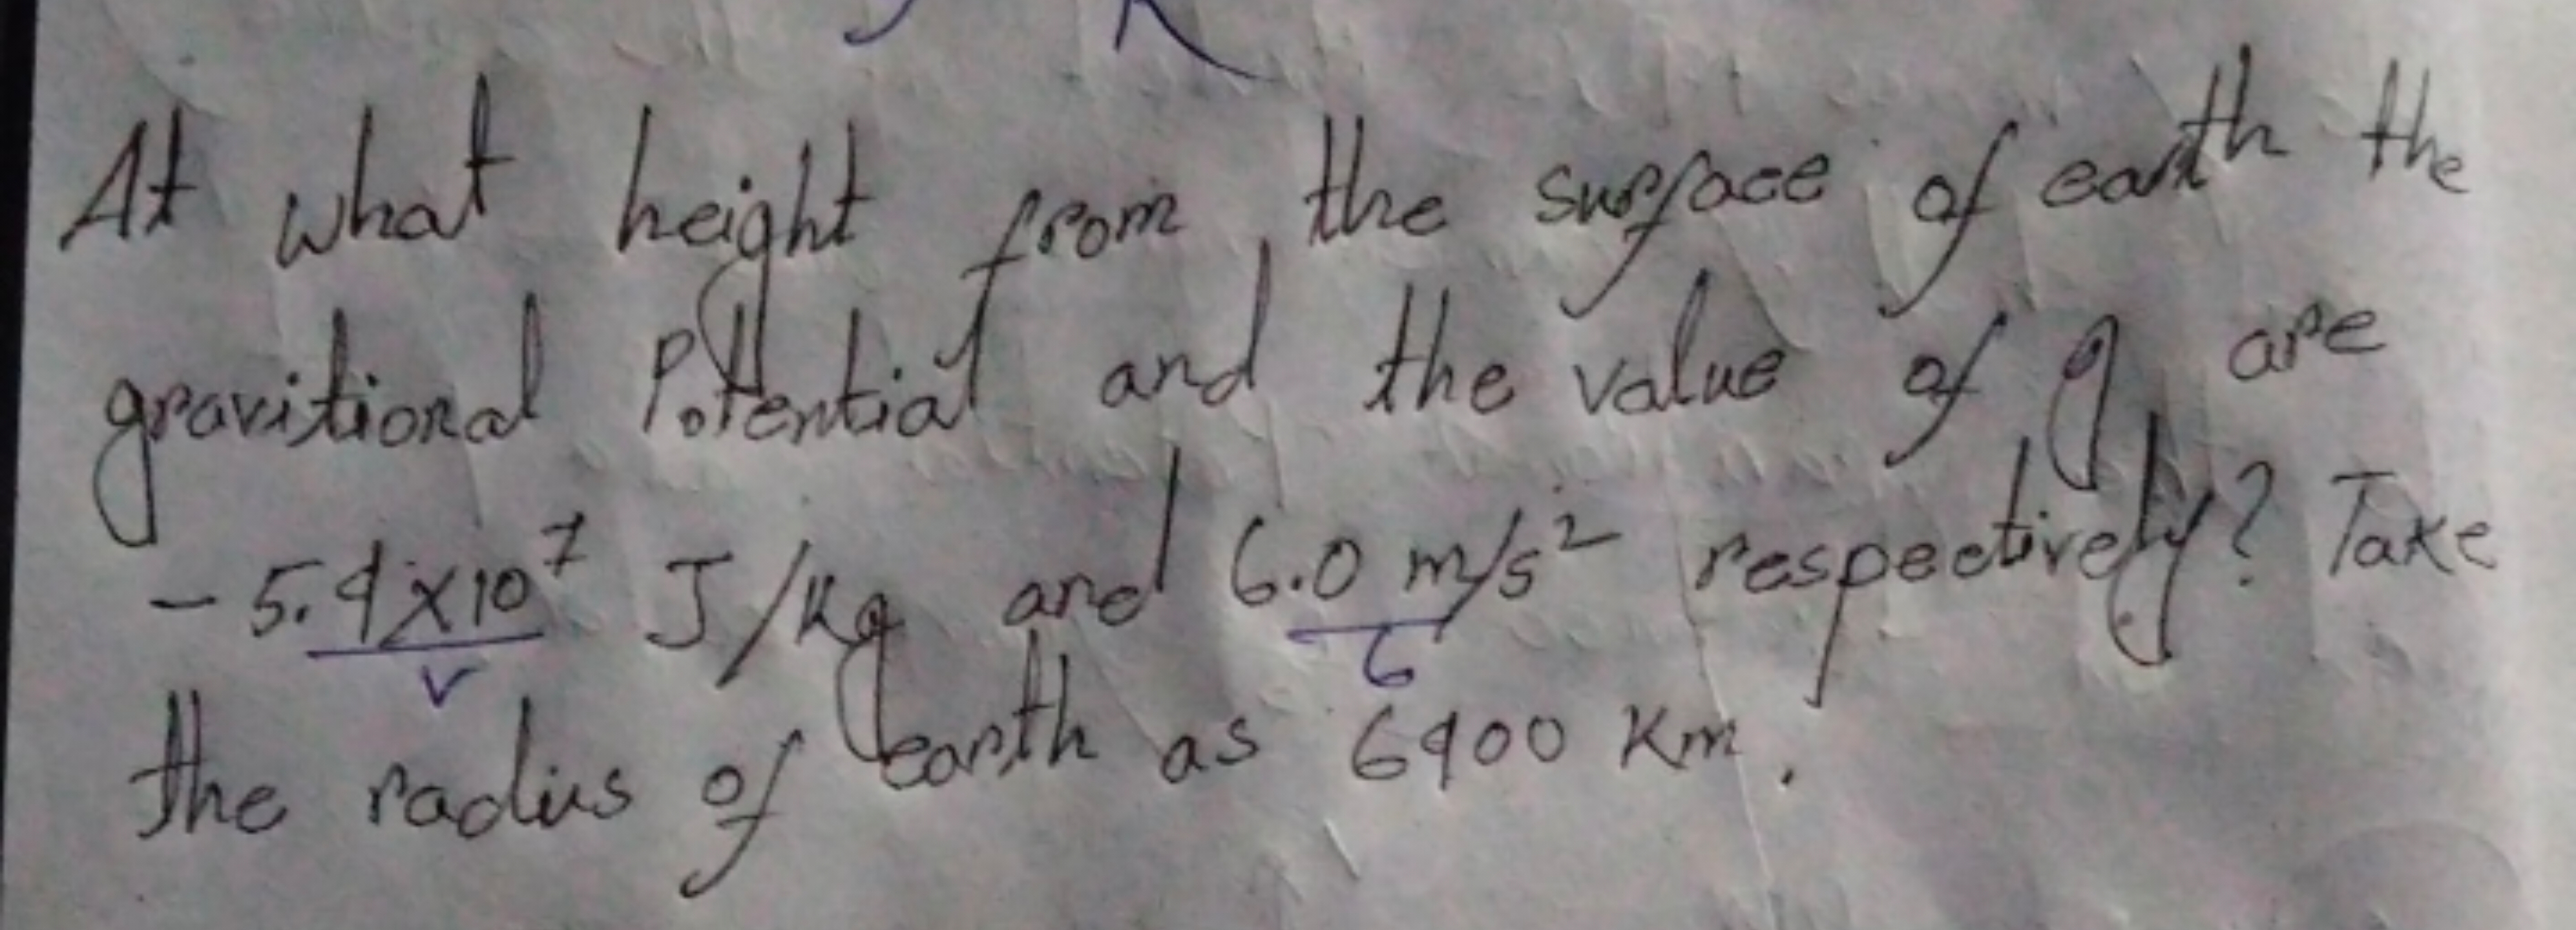 At what height from the surface of earth the
gravitional Potential and the value of g are
- 5.4×10⁷ J/kg and 6.0 m/s² respectively? Take
v 6
the radius of earth as 6400 Km.